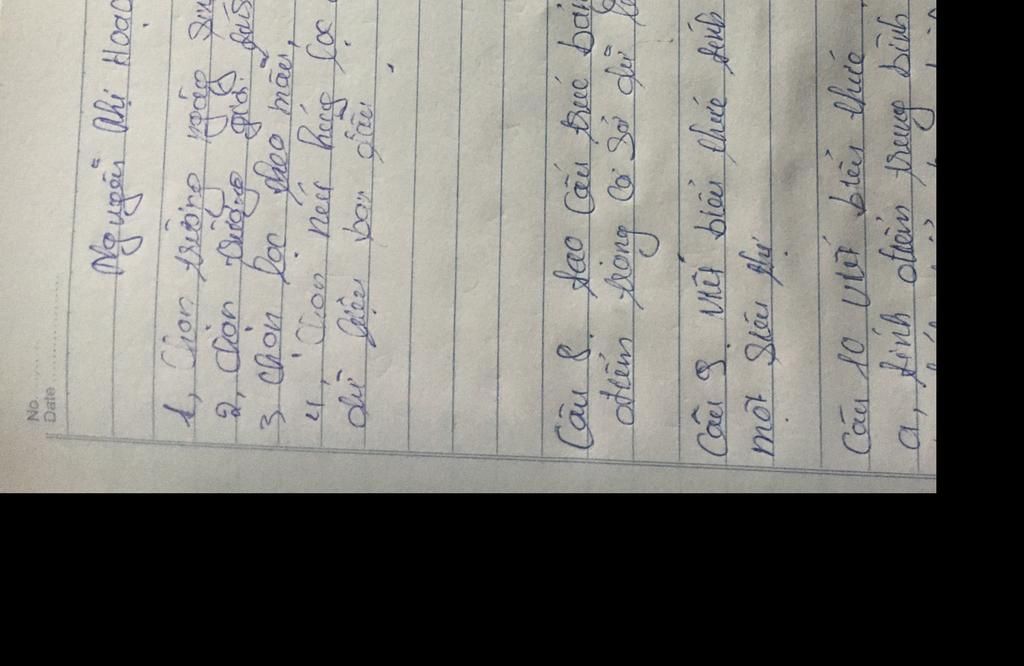 No.
Date
Nguyễn Thị Hoà
1, Chọn trường
2, Chọn
3, Chọn lọc theo mẫu,
4, Chọn nếu không lọc
dữ liệu ban đầu
Câu 8. Sao Cấu trúc bản
điểm trong Cơ Sở dữ
Câu 9 Viết biểu thức tính
một Siêu thị
Câu 10 Viết biểu thức
a, tính điểm trung bình